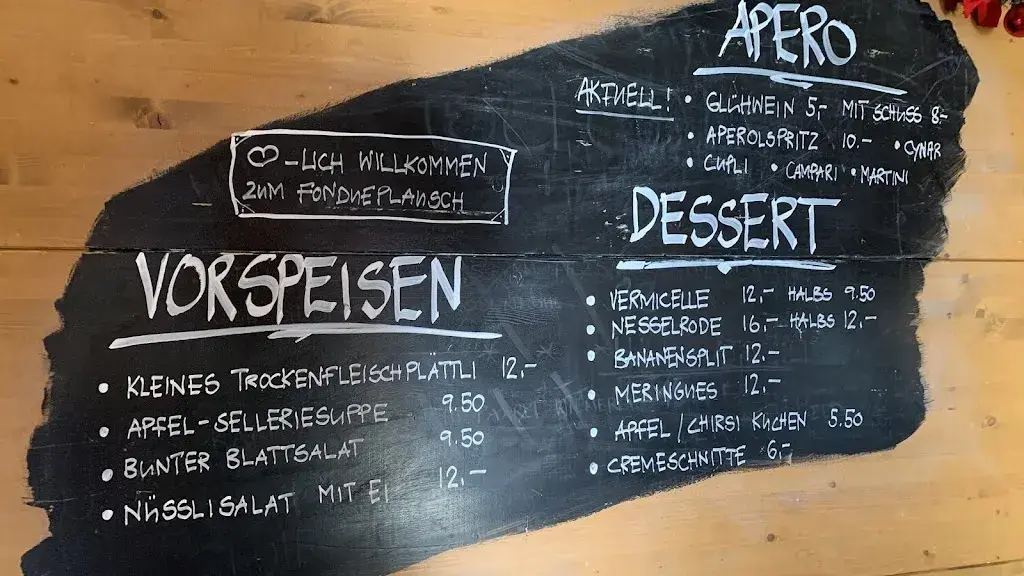 APERO
AKTUELL! • GLÜHWEIN 5,- MIT SCHUSS 8-
• APEROLSPRITZ 10.- • CYNAR
• CÜPLI • CAMPARI • MARTINI
-LICH WILLKOMMEN
ZUM FONDUEPLAUSCH
DESSERT
• VERMICELLE 12,- HALBS 9.50
• NESSELRODE 16,- HALBS 12,-
• BANANENSPLIT 12,-
• MERINGUES 12,-
• APFEL / CHIRSI KUCHEN 5.50
• CREMESCHNITTE 6,-
VORSPEISEN
• KLEINES TROCKENFLEISCHPLÄTTLI 12,-
• APFEL-SELLERIESUPPE 9.50
• BUNTER BLATTSALAT 9.50
• NÜSSLISALAT MIT EI 12,-